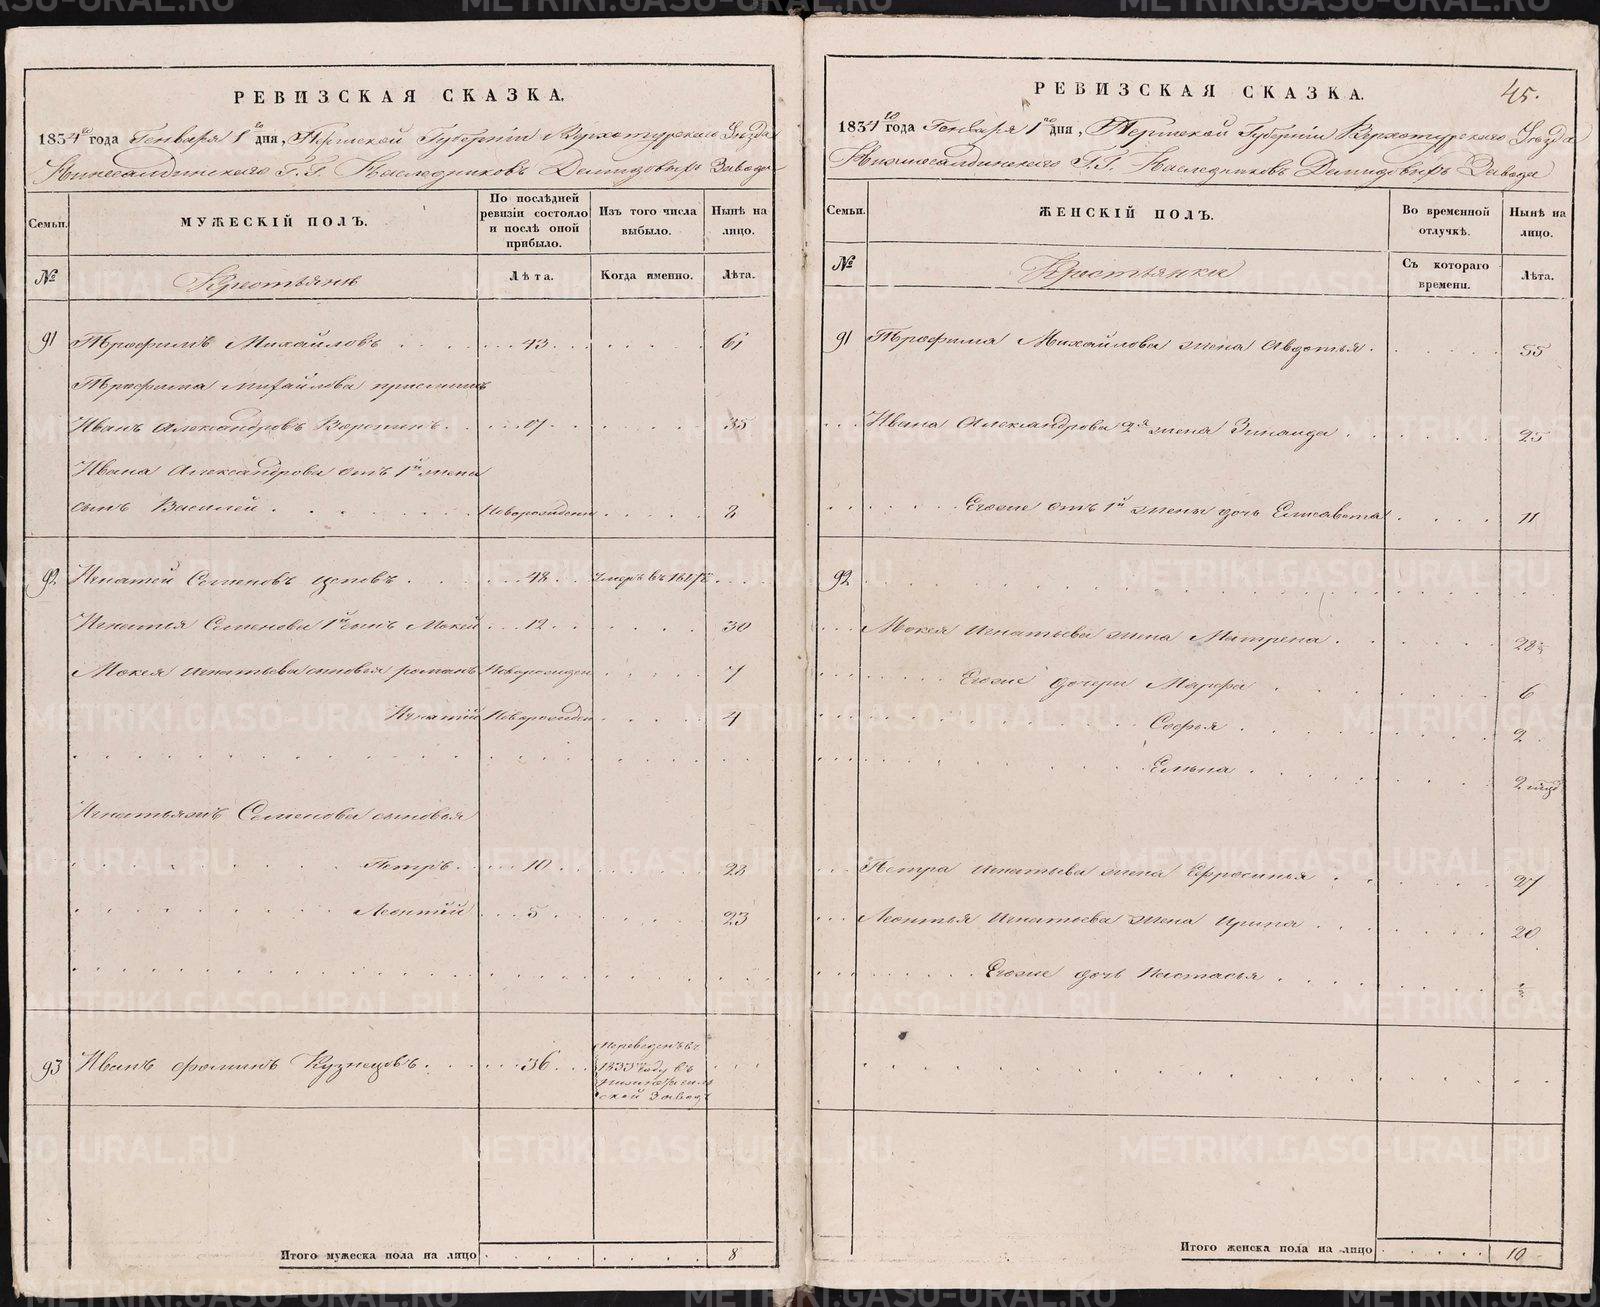 РЕВИЗСКАЯ СКАЗКА.
1834го года Генваря 1го дня, Пермской Губернiи Верхотурскаго Уѣзда
Нижнесалдинскаго Г.Г. Наслѣдниковъ Демидовыхъ Завода
Семьи.
МУЖЕСКIЙ ПОЛЪ.
По послѣдней ревизiи состояло и послѣ оной прибыло.
Изъ того числа выбыло.
Нынѣ на лицо.
№
Крестьянъ
Лѣта.
Когда именно.
Лѣта.
91 Трофимъ Михайловъ 43 61
Трофима Михайлова приемышъ
Иванъ Александровъ 35
Ивана Александрова отъ 1й жены
сынъ Василей Новорожденн 8
92 Игнатей Семеновъ 48 Умеръ въ
Игнатья Семенова 1й сынъ Мокей 12 30
Мокея Игнатьева сыновья Романъ Новорожден 7
Игнатiй Новорожден 4
Игнатьяжъ Семенова сыновья
Петръ 10 28
Леонтiй 5 23
93 Иванъ Фоминъ Кузнецовъ 36 Переведенъ въ
1833 году въ
Нижнетагиль
ской Заводъ
Итого мужеска пола на лицо 8
45.
РЕВИЗСКАЯ СКАЗКА.
1834го года Генваря 1го дня, Пермской Губернiи Верхотурскаго Уѣзда
Нижнесалдинскаго Г.Г. Наслѣдниковъ Демидовыхъ Завода
Семьи.
ЖЕНСКIЙ ПОЛЪ.
Во временной отлучкѣ.
Нынѣ на лицо.
№
Крестьянки
Съ котораго времени.
Лѣта.
91 Трофима Михайлова жена Авдотья 55
Ивана Александрова 2я жена Зинаида 25
Егоже отъ 1й жены дочь Елисавета 11
92
Мокея Игнатьева жена Матрена 28
Егоже дочери Марфа 6
Софья 2
Елена 2
Петра Игнатьева жена Ефросинья 27
Леонтья Игнатьева жена Ирина 20
Егоже дочь Настасья
Итого женска пола на лицо 10
METRIKI.GASO-URAL.RU